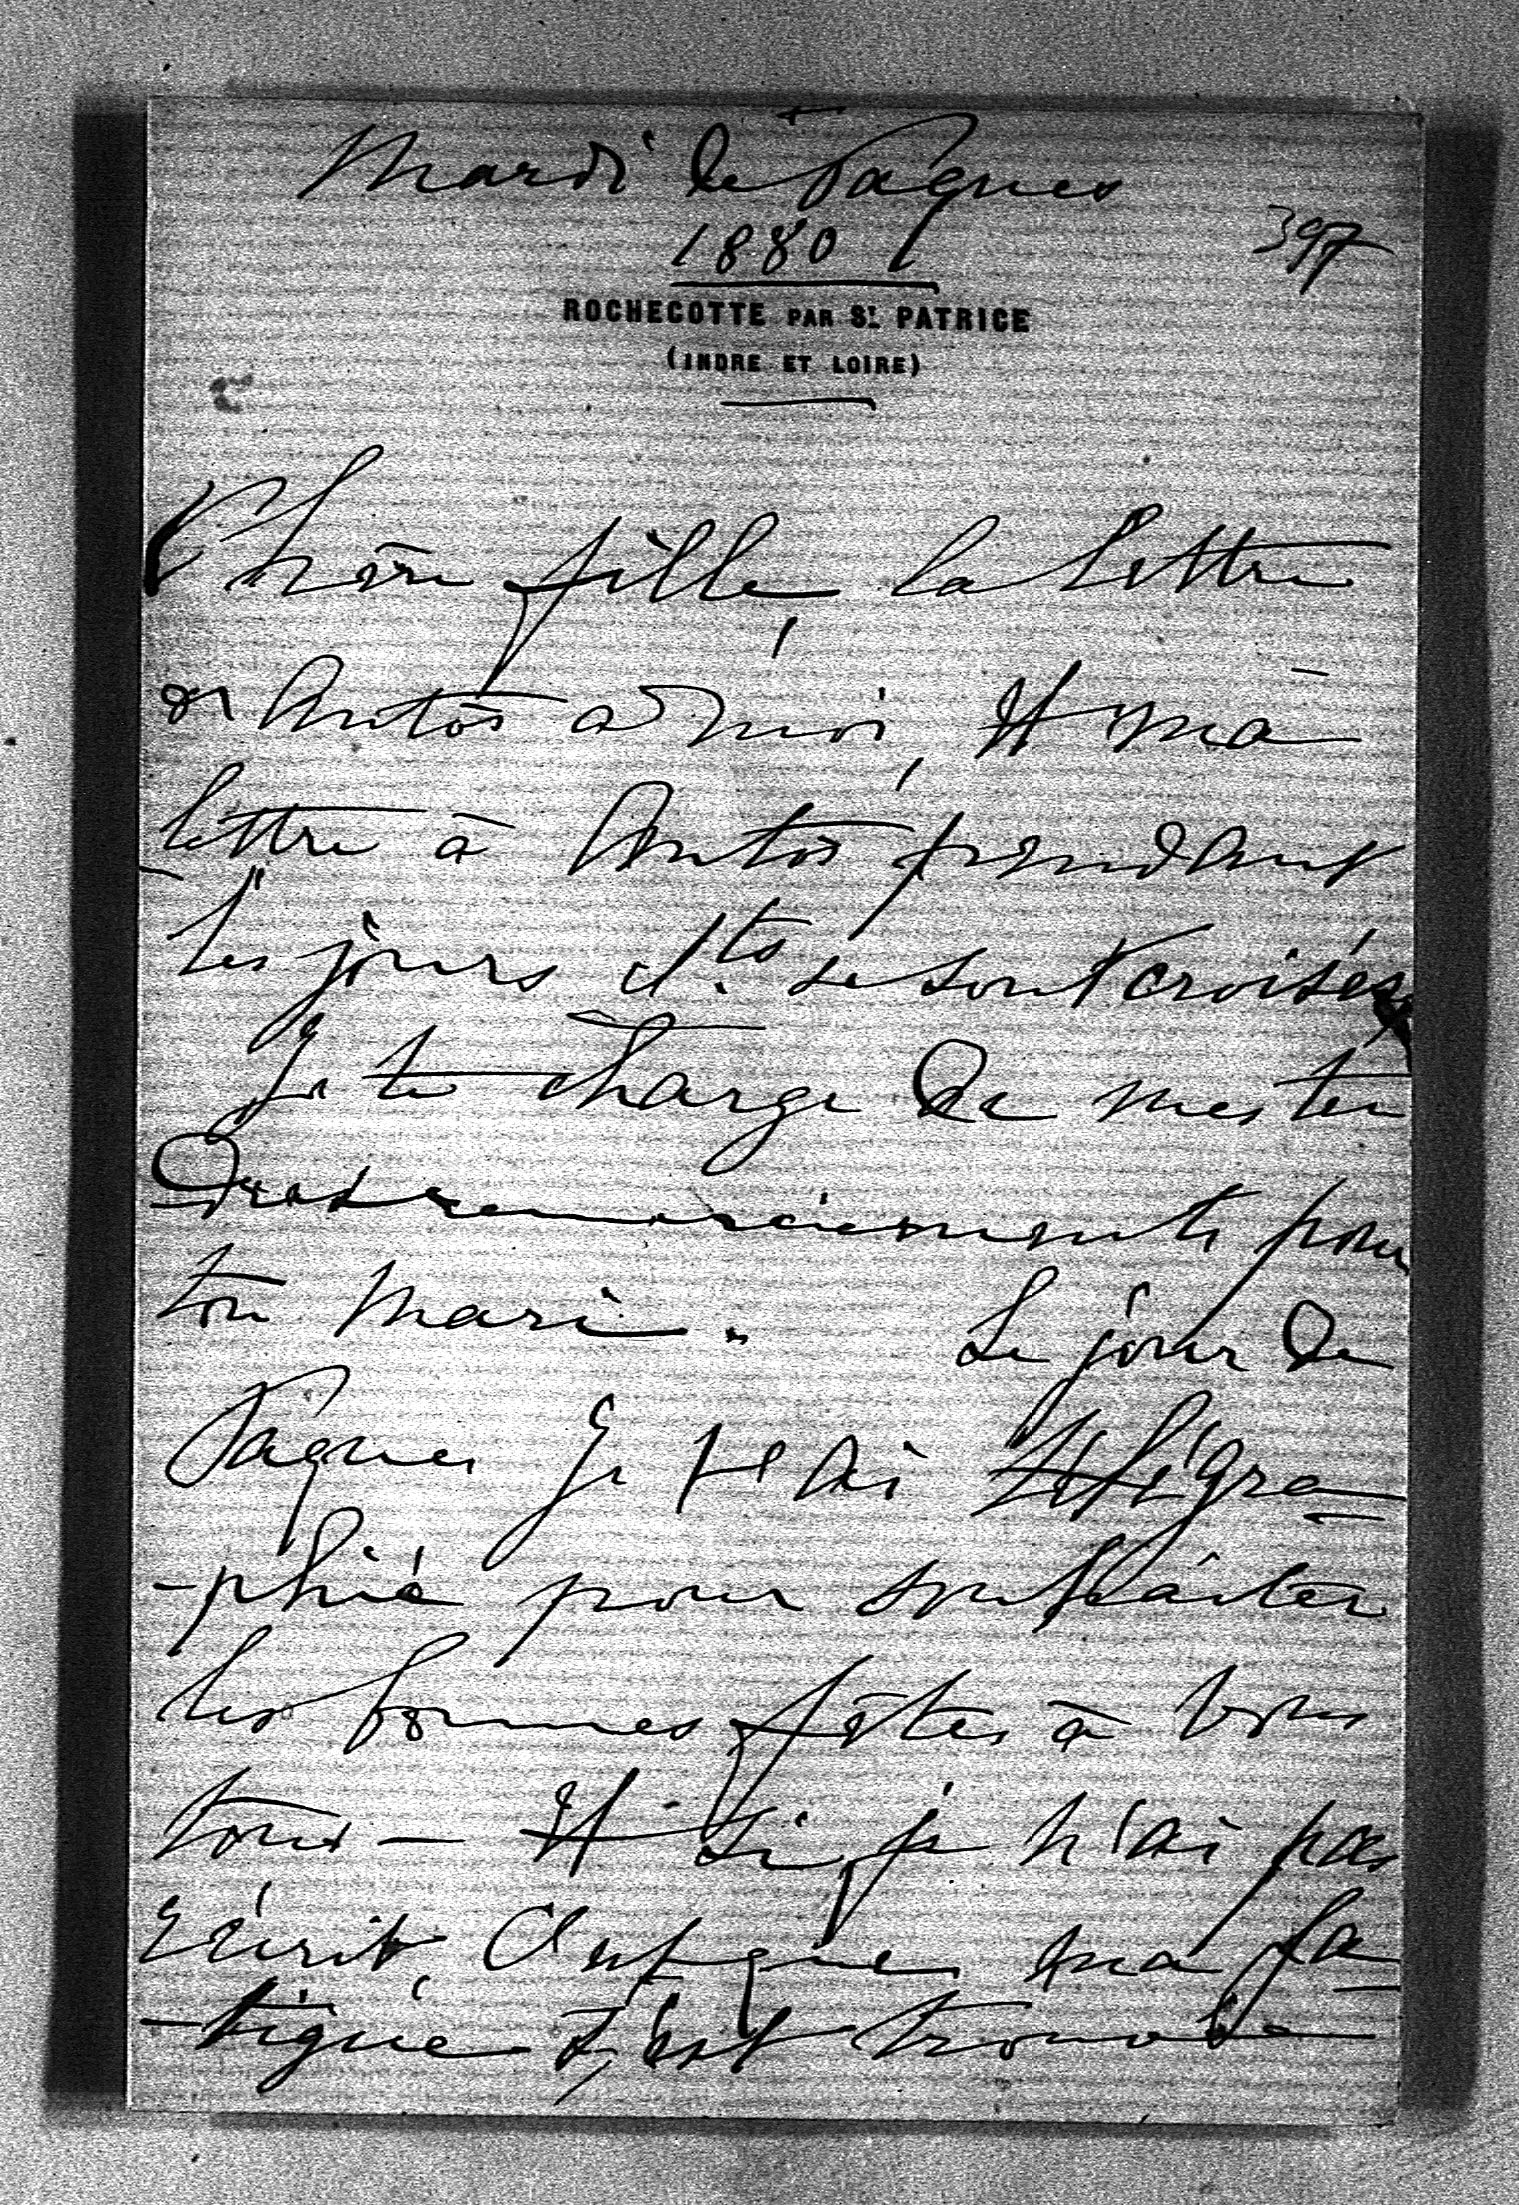 Mardi de Pâques
1880
397
ROCHECOTTE PAR ST. PATRICE
(INDRE ET LOIRE)
Chère fille, la lettre
de Antos à moi, et ma
lettre à Antos pendant
les jours Sts se sont croisées
Je te charge de mes ten
dres remerciements pour
ton mari. Le jour de
Pâques je t'ai télégra-
-phié pour souhaiter
les bonnes fêtes à vous
tous — et si je n'ai pas
écrit, c'est que ma fa-
-tigue s'est trouvée